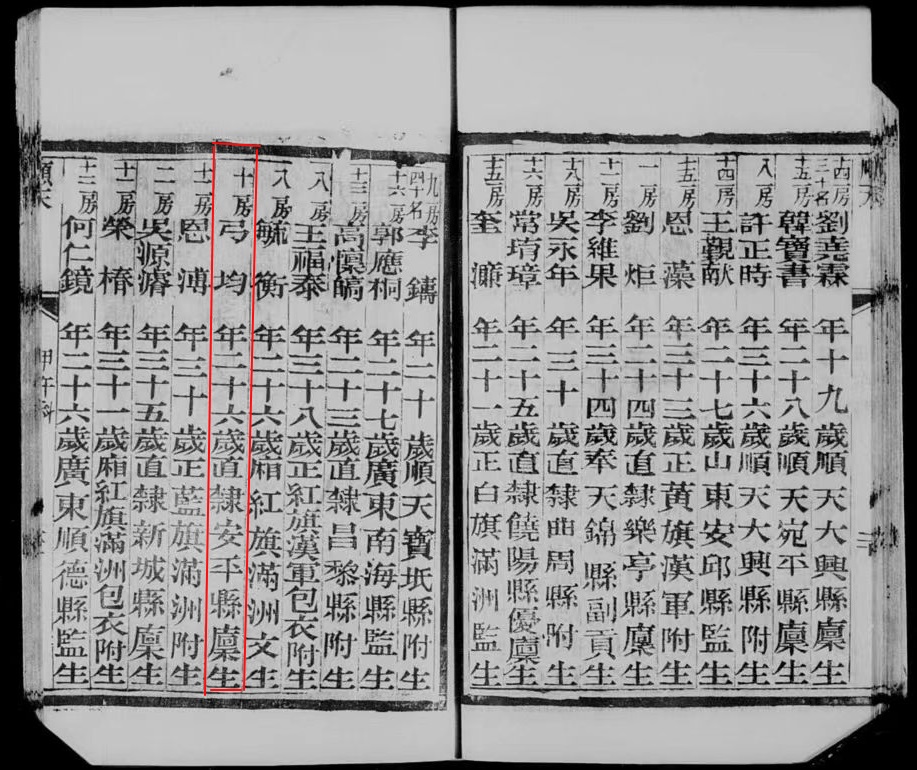 順天
十四房
三十名
劉堯霖 年十九歲順天大興縣廩生
十五房 韓寶書 年二十八歲順天宛平縣廩生
八房 許正時 年三十六歲順天大興縣附生
十四房 王覲猷 年二十七歲山東安邱縣監生
十五房 恩藻 年三十三歲正黃旗漢軍附生
一房 劉炬 年二十四歲直隸樂亭縣廩生
十一房 李維果 年三十四歲奉天錦縣副貢生
十八房 吳永年 年三十歲直隸曲周縣附生
十六房 常堉璋 年二十五歲直隸饒陽縣優廩生
十五房 奎濂 年二十一歲正白旗滿洲監生
九房
四十名
李鑄 年二十歲順天寶坻縣附生
十六房 郭應桐 年二十七歲廣東南海縣監生
十三房 高懷皜 年二十三歲直隸昌黎縣附生
八房 王福泰 年三十八歲正紅旗漢軍包衣附生
八房 毓衡 年二十六歲廂紅旗滿洲文生
十房 弓均 年二十六歲直隸安平縣廩生
十一房 恩溥 年三十歲正藍旗滿洲附生
二房 吳源濬 年三十五歲直隸新城縣廩生
十二房 榮椿 年三十一歲廂紅旗滿洲包衣附生
十二房 何仁鏡 年二十六歲廣東順德縣監生
順天
甲午科